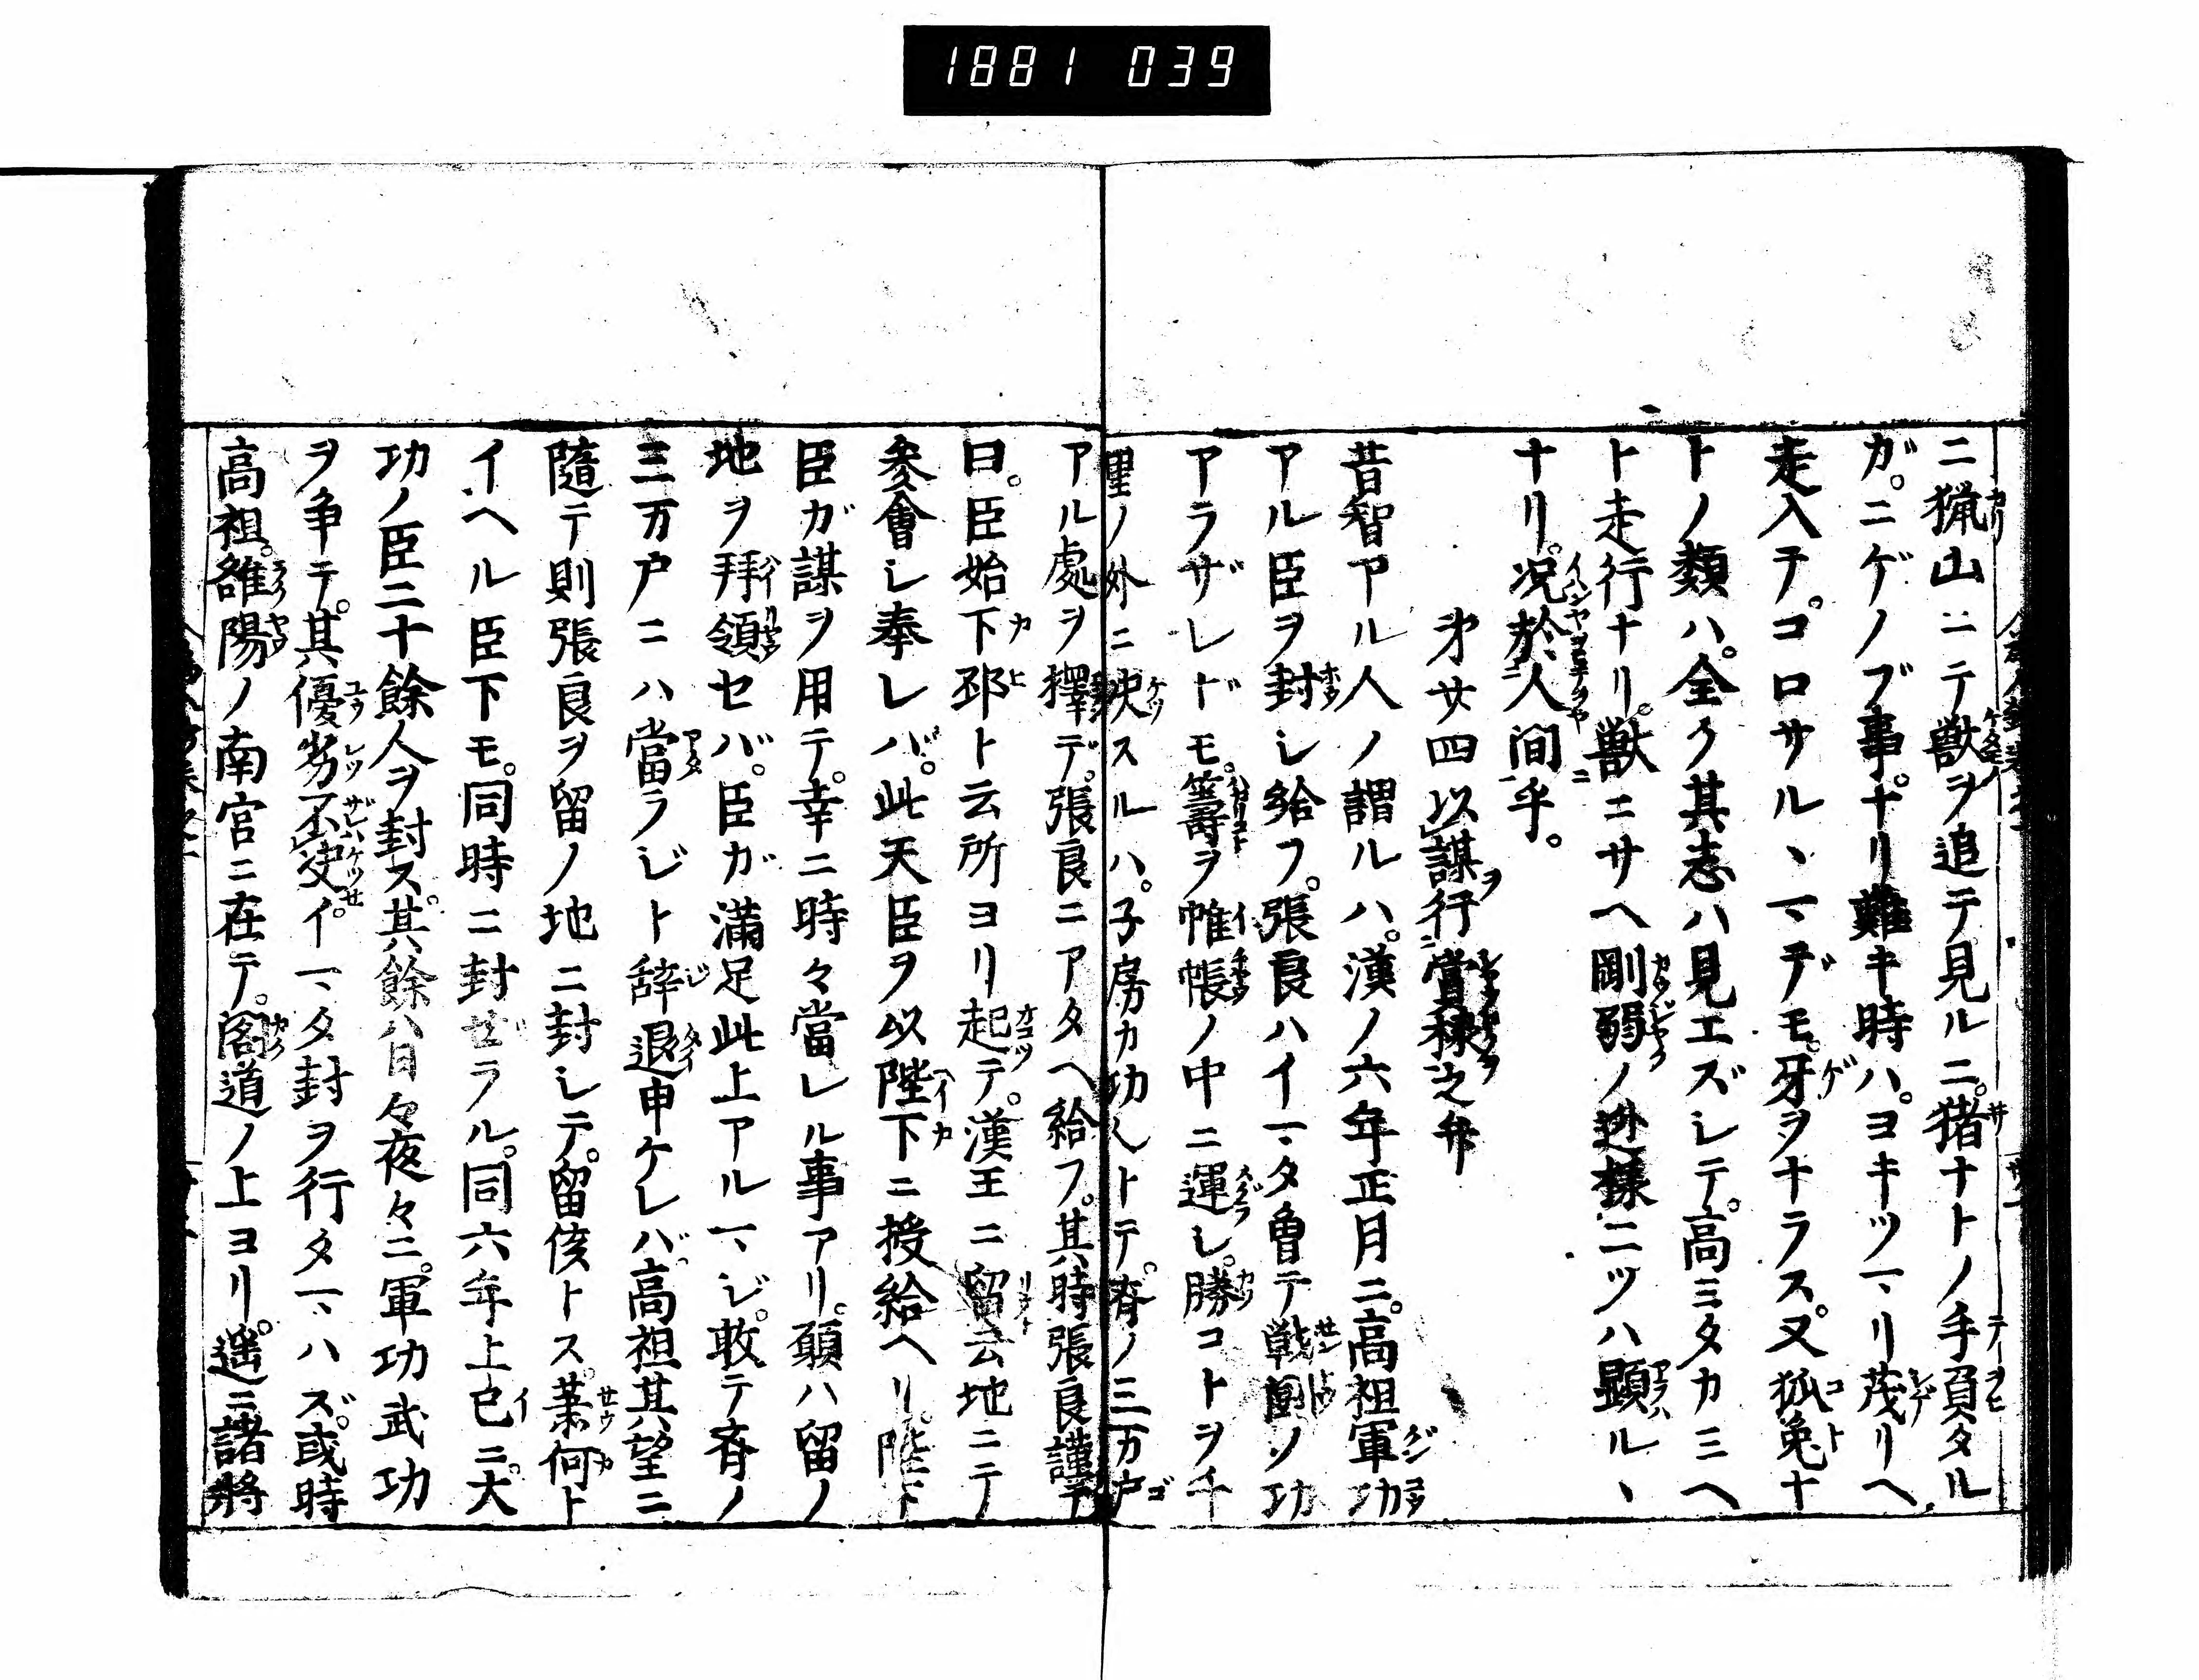 1881 039
ニ猟山ニテ獣ヲ追テ見ルニ。猪ナトノ手負タル
ガ。ニゲノブ事。ナリ難キ時ハ。ヨキツマリ茂リヘ
走入テ。コロサルヽマデモ。牙ヲナラス。又狐兔ナ
トノ類ハ。全ク其志ハ見エズシテ。高ミタカミヘ
ト走行ナリ。獣ニサヘ剛弱ノ迯様ニツハ顕ルヽ
ナリ。况於人間乎。
㐧廿四以謀行賞禄之弁
昔智アル人ノ謂ルハ。漢ノ六年正月ニ。高祖軍功
アル臣ヲ封シ給フ。張良ハイマタ曽テ戦鬪ノ功
アラザレドモ。籌ヲ帷帳ノ中ニ運シ。勝コトヲ千
里ノ外ニ决スルハ。子房カ功ントテ。齊ノ三万戸
アル處ヲ擇デ。張良ニアタヘ給フ。其時張良謹テ
曰。臣始下邳ト云所ヨリ起テ。漢王ニ留云地ニテ
参會シ奉レバ。此天臣ヲ以陛下ニ授給ヘリ。陛下
臣ガ謀ヲ用テ。幸ニ時々當レル事アリ。願ハ留ノ
地ヲ拜領セバ。臣ガ満足此上アルマジ。敢テ齊ノ
三万戸ニハ當ラジト辞退申ケレバ。高祖其望ニ
隨テ則張良ヲ留ノ地ニ封シテ。留侯トス。蕭何ト
イヘル臣下モ。同時ニ封ぜラル。同六年上已ニ。大
功ノ臣二十餘人ヲ封ス。其餘ハ日々夜々ニ。軍功武功
ヲ争テ。其優劣不决。イマタ封ヲ行タマハズ。或時
高祖。雒陽ノ南宮ニ在テ。閣道ノ上ヨリ。遥ニ諸將